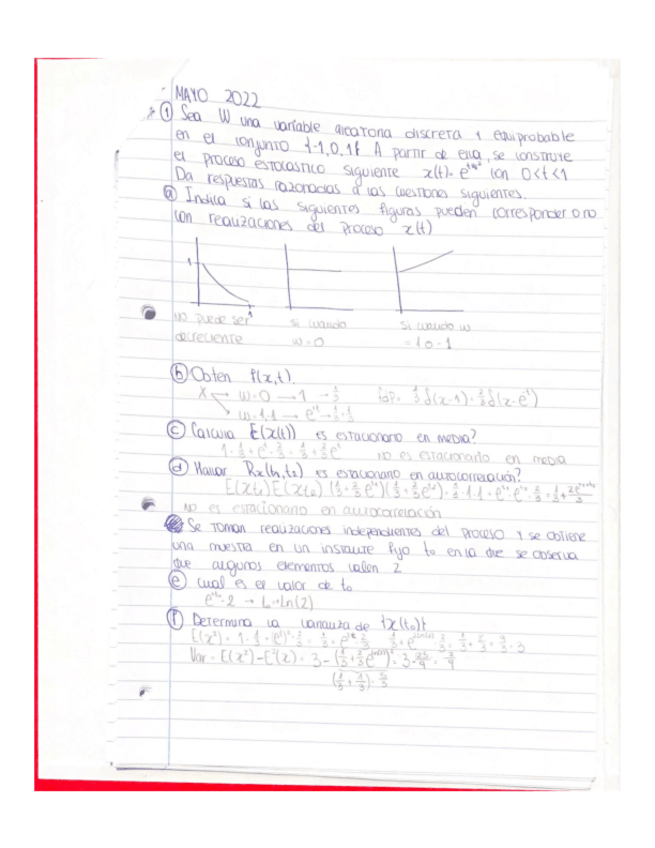 MAYO 2022
① Sea W una variable aleatoria discreta y equiprobable
en el conjunto {-1,0,1}. A partir de ella, se construye
el proceso estocastico siguiente x(t)= e^{tw²} con 0<t<1
Da respuestas razonadas a las cuestiones siguientes.
ⓐ Indica si las siguientes figuras pueden corresponder o no
con realizaciones del proceso x(t)
1
1
no puede ser si cuando si cuando w
decreciente w=0 =1 o -1
ⓑ Obten f(x,t).
X w=0 → 1 → 1/3 fdp= 1/3 δ(x-1)+ 2/3 δ(x-e^t)
w=1,-1 → e^t →
ⓒ Calcula E(x(t)) es estacionario en media?
1·1/3 + e^t·2/3 = 1/3 + 2/3 e^t no es estacionario en media
ⓓ Hallar Rx(t1,t2) es estacionario en autocorrelación?
E(Xt1)E(Xt2)
no es estacionario en autocorrelación
Se toman realizaciones independientes del proceso y se obtiene
una muestra en un instante fijo to en la que se observa
que algunos elementos valen 2
ⓔ cual es el valor de to
e^{to}=2 → to=Ln(2)
ⓕ Determina la varianza de {x(to)}
Var = E(x²)-E²(x) = 3 -